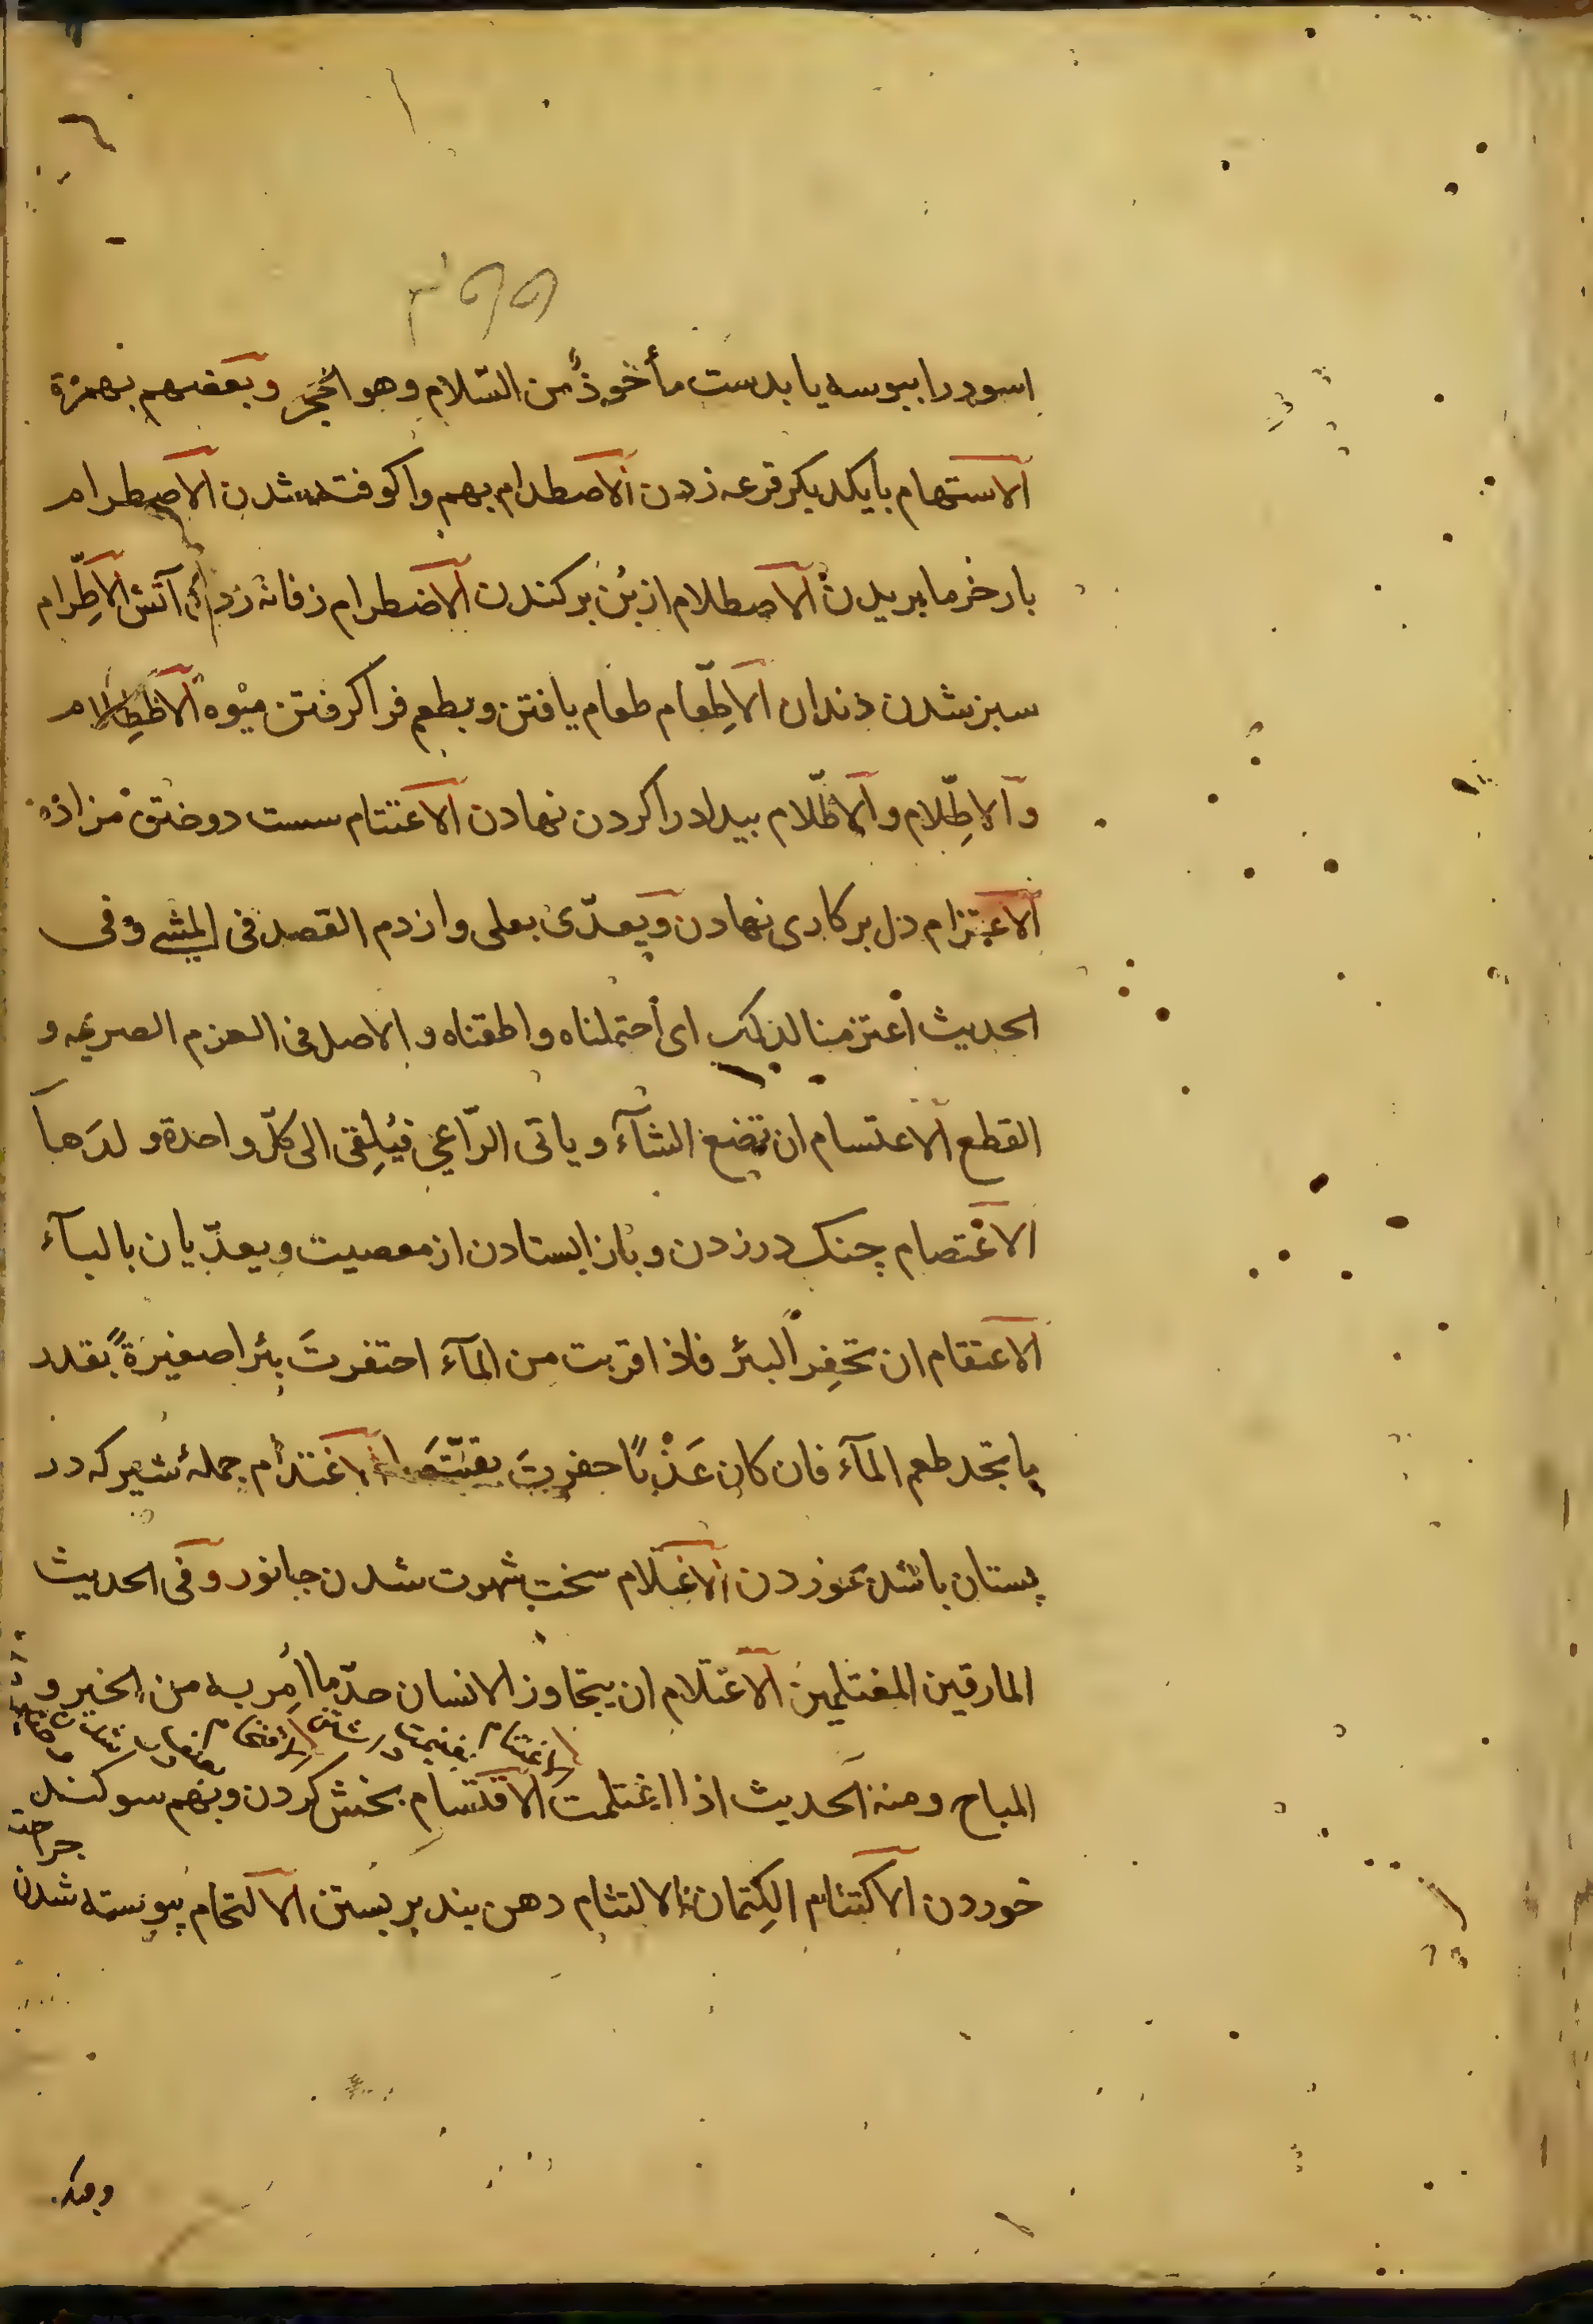 اسود را ببوسه یا بدست مأخوذٌ من السّلام وهو الحَجَر وبعضهم بهمزة
الاستهام با یکدیکر قرعه زدن الاصطدام بهم واکوفته شدن الاصطرام
بار خرما بریدن الاصطلام از بُن برکندن الاضطرام زفانه زدن آتش الاطِّرام
سبز شدن دندان الاطِّعام طعام یافتن و بطعم فرا کرفتن میوه الاظطِلام
و الاطِّلام و الاظّلام بیداد را کردن نهادن الاعتتام سست دوختن مزاده
الاعتزام دل بر کاری نهادن و یعدّی بعلی و ازدم القصد فی المشی وفی
الحدیث اعتزمنا لذلک ای احتملناه واطقناه و الاصل فی العزم الصریمه و
القطع الاعتسام ان تضع الشآء و یاتی الرّاعی فیُلِقی الی کلّ واحدة ولدَها
الاعْتصام چنک در زدن و باز ایستادن از معصیت و یعدّیان بالبآء
الاعتقام ان تحفِر البئر فاذا قربت من المآء احتفرتَ بئرا صغیرةً بقدر
ما تجد طعم المآء فان کان عَذْبًا حفرتَ بقیّتَها الاغتذام جملهٔ شیر که در
پستان باشد بخوردن الاغتلام سخت شهوت شدن جانور وفی الحدیث
المارقین المغتلمین الاغتلام ان یتجاوز الانسان حدّ ما اُمِر به من الخیر و
الاغتنام بغنیمت داشتن الاقتحام
المباح ومنه الحدیث اذا اغتلمت الاقتسام بخش کردن وبهم سوکند
جراحت
خوردن الاکتتام الکِتمان الالتثام دهن بند بر بستن الالتحام پیوسته شدن